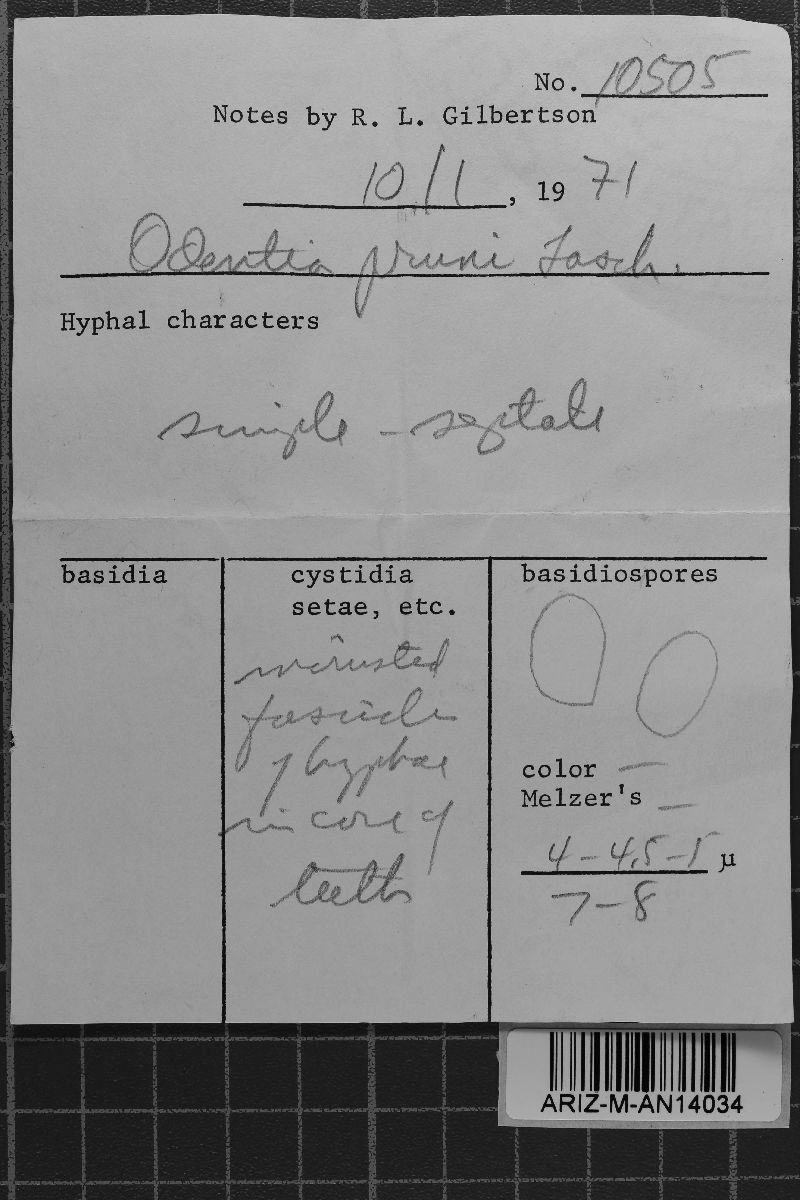 No. 10505
Notes by R. L. Gilbertson
10/1, 19 71
Odontia pruni Lasch.
Hyphal characters
simple - septate
basidia
cystidia
setae, etc.
incrusted
fascicle
of hyphae
in core of
teeth
basidiospores
color —
Melzer's —
4-4.5-5 µ
7-8
ARIZ-M-AN14034